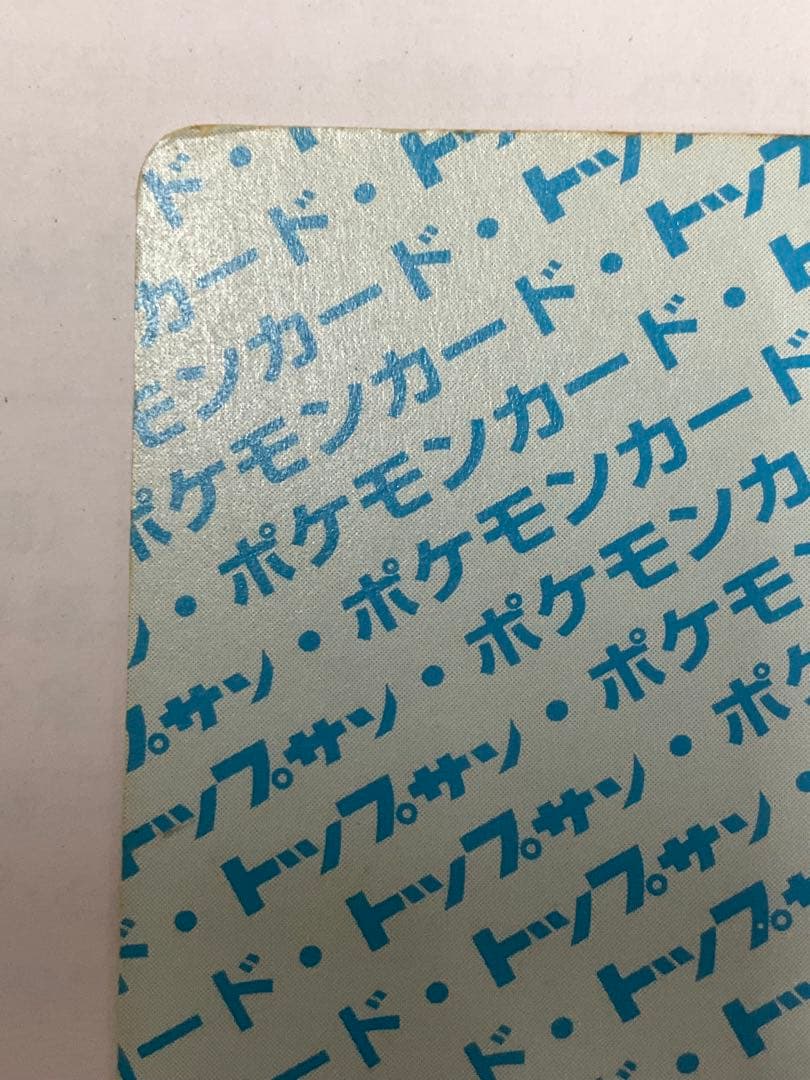 ド・
カード・ト
モンカード・トッ
ポケモンカード・トップ
・ポケモンカード・ト
プサン・ポケモンカード
トップサン・ポケモンカ
ド・トップサン・ポケモ
ード・トップサン・ポケ
ード・トップサン・
ド・トップサ
・トッ